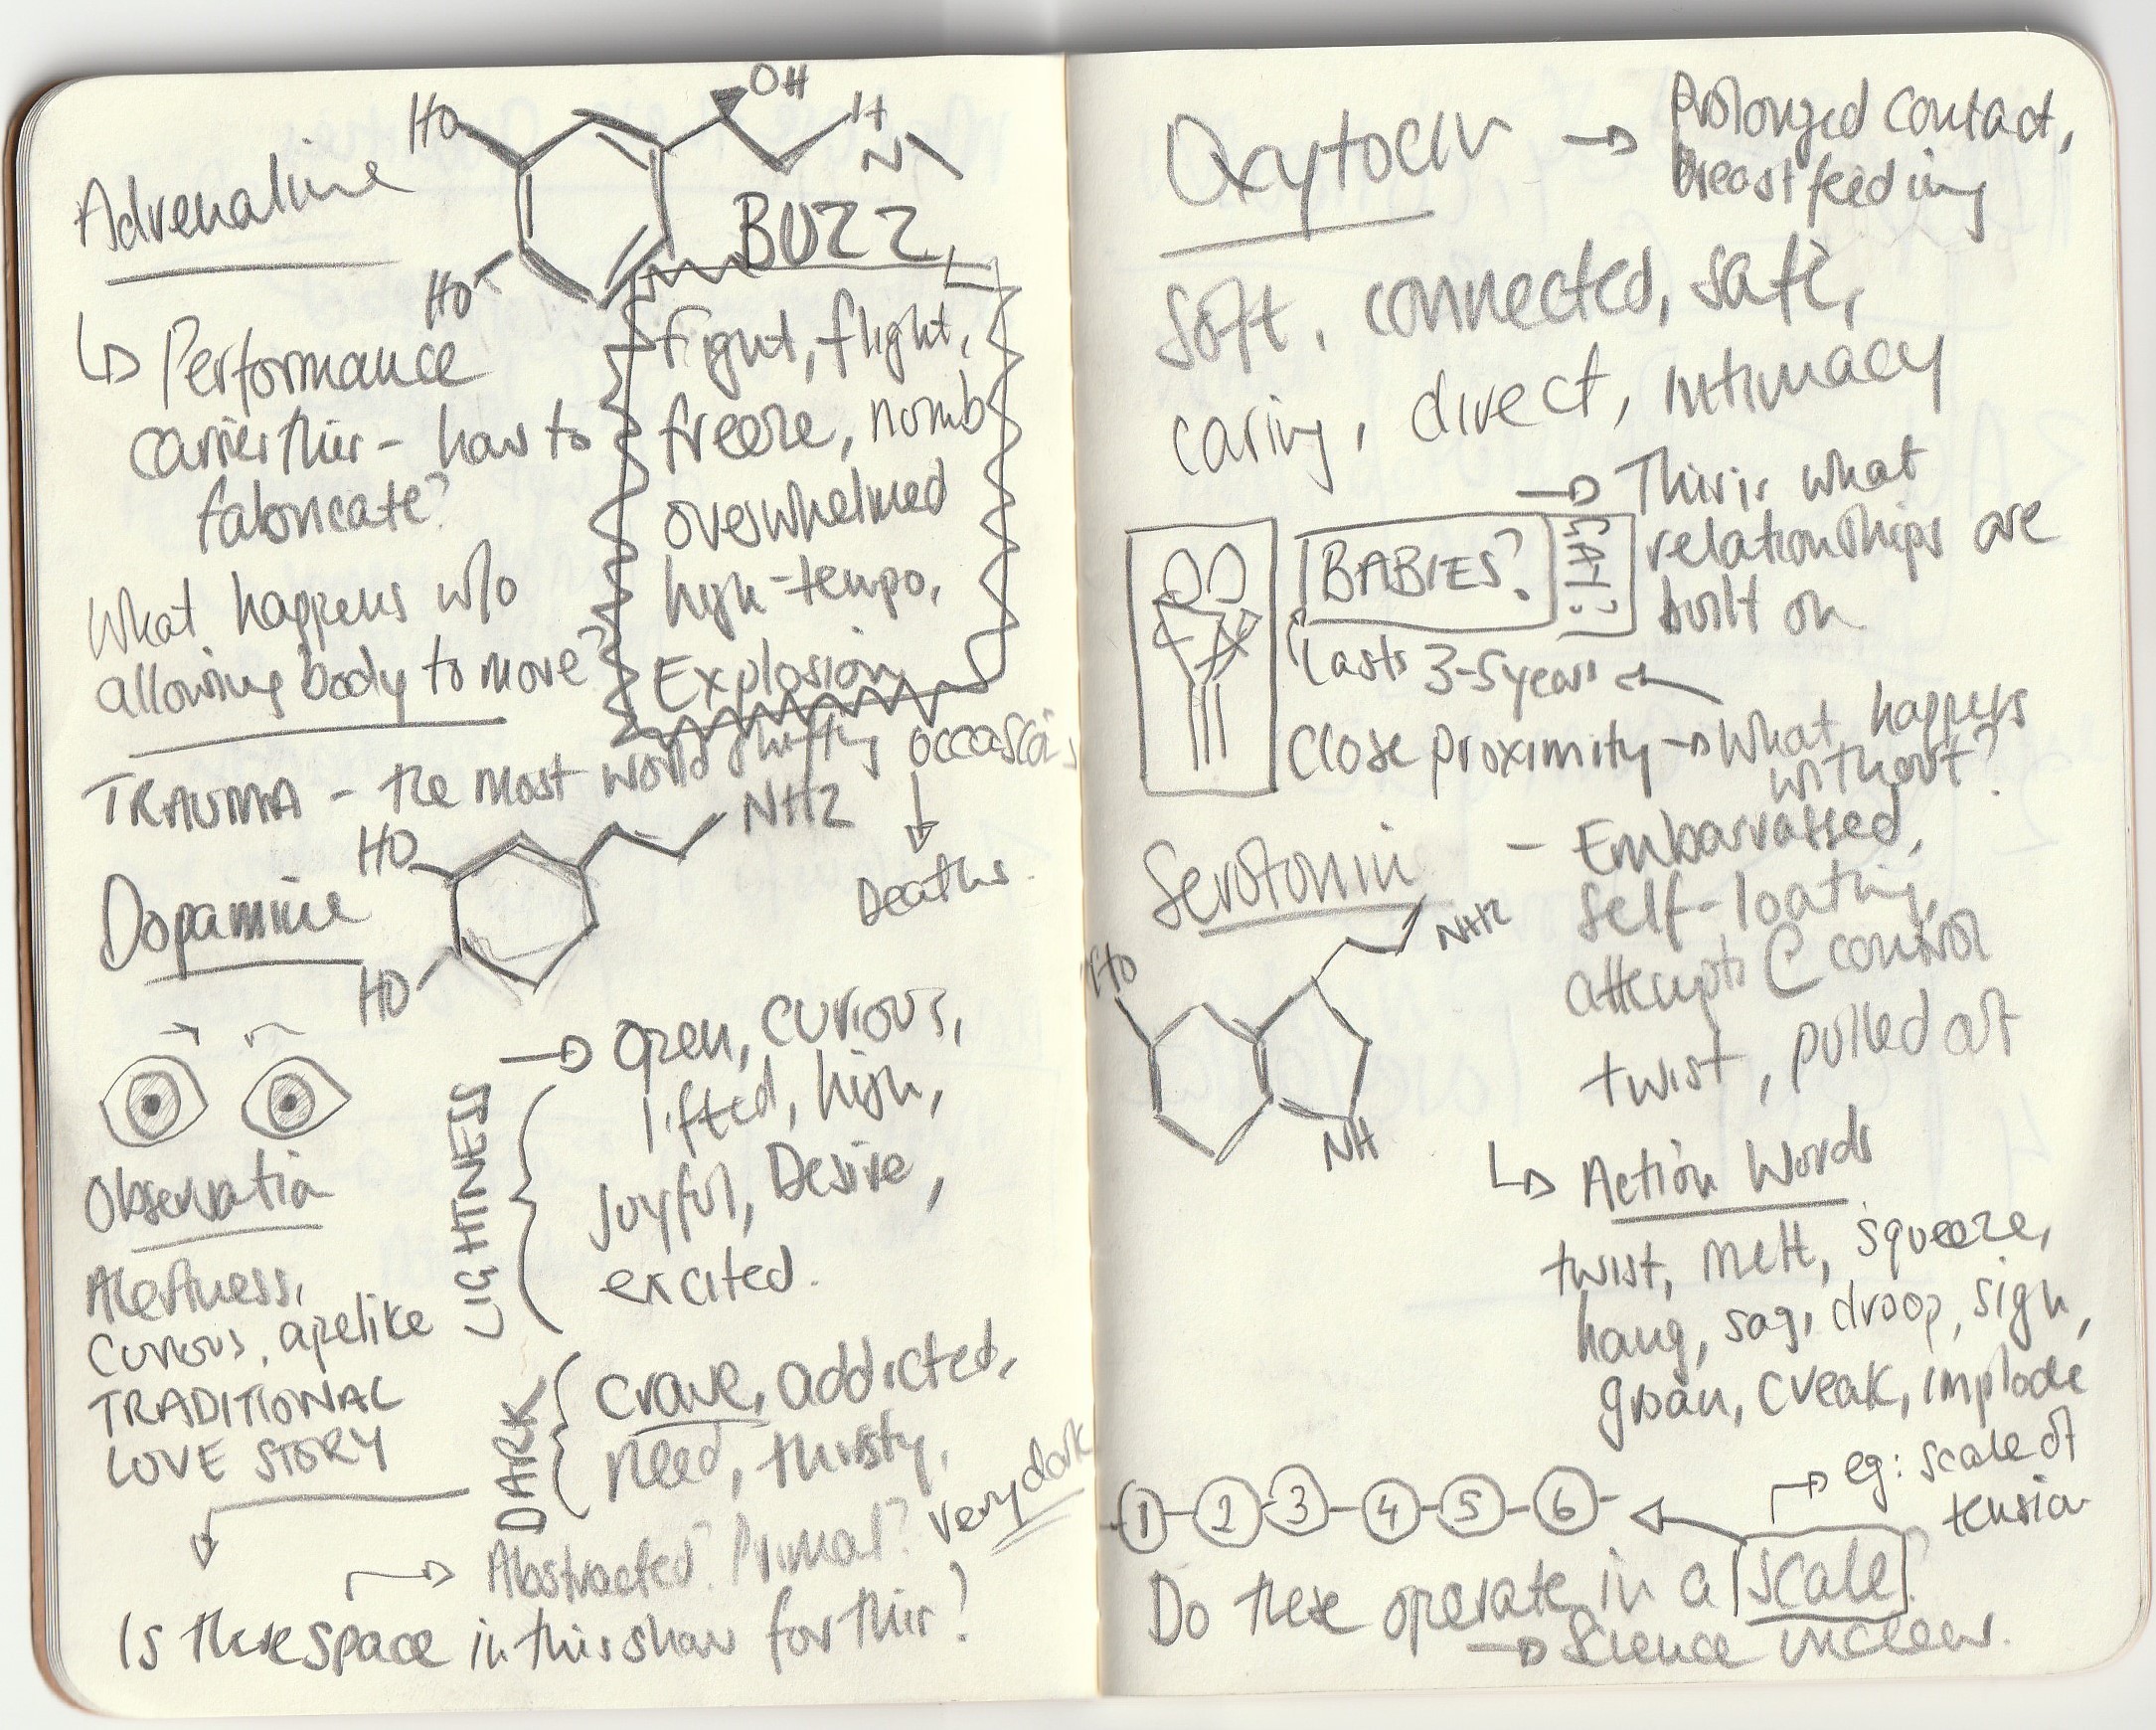 Adrenaline
HO
OH
H
N
HO
BUZZ
↳ Performance
carries this - how to
fabricate?
What happens w/o
allowing body to move?
fight, flight,
freeze, numb
overwhelmed
high-tempo,
Explosion
TRAUMA - the most world shifting occasions
↓
Deaths.
Dopamine
HO
NH2
HO
Observation
Alertness,
Curious, apelike
TRADITIONAL
LOVE STORY
LIGHTNESS
→ Open, curious,
lifted, high,
Joyful, Desire,
excited.
DARK
crave, addicted,
need, thirsty,
very dark
→ Abstracted? Primal?
Is there space in this show for this?
Oxytocin → Prolonged contact,
breastfeeding
Soft, connected, safe,
caring, direct, intimacy
→ This is what
relationships are
built on
BABIES?
CATS?
Lasts 3-5 years ←
Close proximity → What happens
without?
Serotonin
HO
NH2
NH
- Embarrassed,
self-loathing,
attempts @ control
twist, pulled out
↳ Action Words
twist, melt, squeeze,
hang, sag, droop, sigh,
groan, creak, implode
→ eg: scale of
tension
1 - 2 - 3 - 4 - 5 - 6 - ←
Do these operate in a scale?
→ Science unclear.